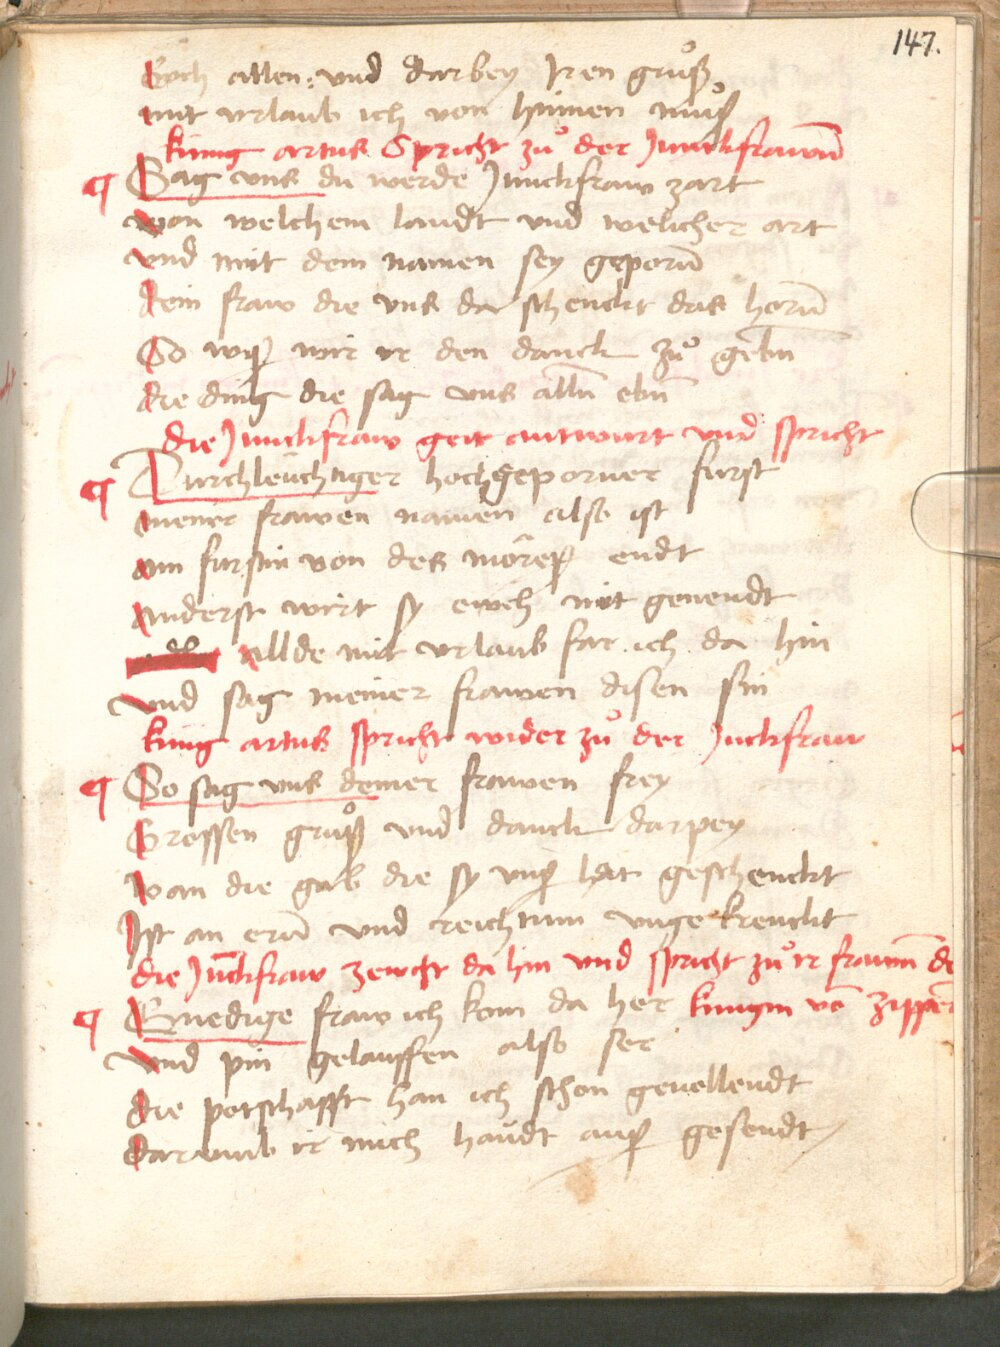 147.
Euch allen: und darbey Iren gruͦß
mit urlaub ich von hinnen muͦß
kunig artus Spricht zuͦ der Junckfrawn̄
¶ Sag uns du werde Junckfraw zart
von welchem landt und welicher art
und mit dem namen sey geporn̄
dein fraw die uns da schenckt das horn̄
So wiß wir ir den danck zuͦ gebn̄
die ding die sag uns alln̄ ebn̄
die Junckfraw geit antwurt und spricht
¶ Durchleuchtiger hochgeporner furst
meiner frawen namen also ist
ain furstin von des möreß endt
anderst wirt sy ewch nit genendt
allde mit urlaub far ich da hin
und sag meiner frawen disen sin
kunig artus spricht wider zuͦ der Junckfraw
¶ So sag uns deiner frawen frey
Grossen gruͦß und danck darpey
wan die gab die sy unß hat geschenckt
Ist an ern̄ und reichtum ungekrenckt
die Jūckfraw zewcht da hin und spricht zuͦ ir frawen̄ de
¶ Gnedige fraw ich kom da her kungin vō zippern̄
und pin gelauffen also ser
die potschafft han ich schon geuellendt
darumb ir mich haudt auß gesendt